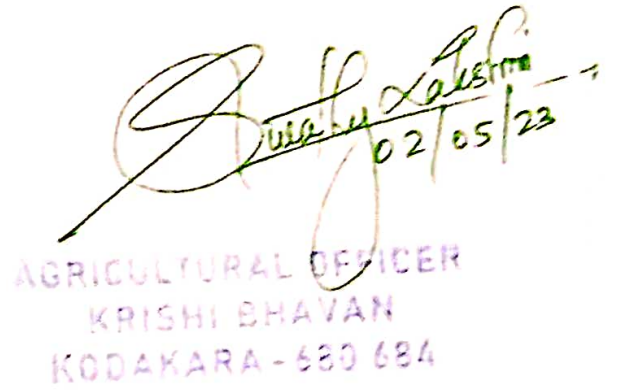 Swathy Lakshmi
02/05/23
AGRICULTURAL OFFICER
KRISHI BHAVAN
KODAKARA - 680 684